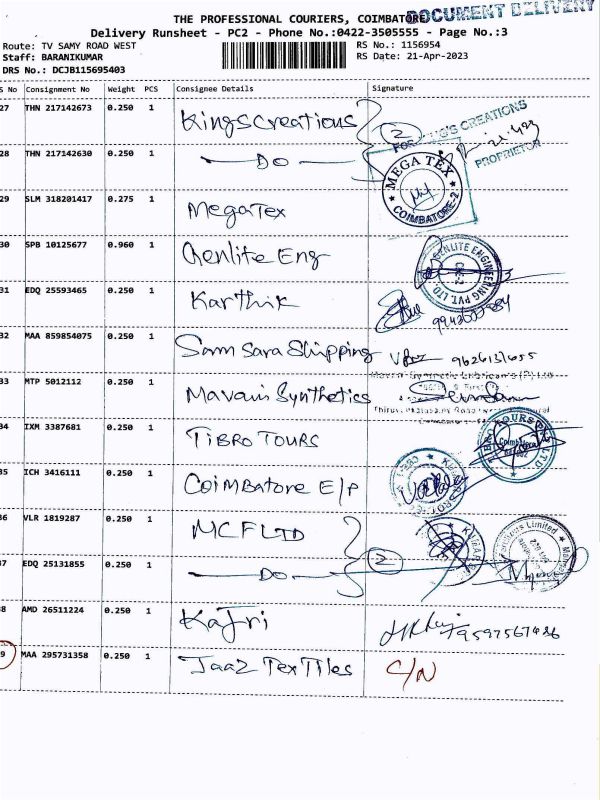 THE PROFESSIONAL COURIERS, COIMBATORE
DOCUMENT DELIVERY
Delivery Runsheet - PC2 - Phone No.:0422-3505555 - Page No.:3
Route: TV SAMY ROAD WEST
RS No.: 1156954
Staff: BARANIKUMAR
RS Date: 21-Apr-2023
DRS No.: DCJB115695403
S No Consignment No Weight PCS Consignee Details Signature
27 THN 217142673 0.250 1 KingsCreations 2
FOR KING'S CREATIONS
PROPRIETOR
28 THN 217142630 0.250 1 DO
MEGA TEX
COIMBATORE-2
29 SLM 318201417 0.275 1 MegaTex
30 SPB 10125677 0.960 1 Genlite Eng
GENLITE ENGINEERING PVT. LTD.
31 EDQ 25593465 0.250 1 Karthik
32 MAA 859854075 0.250 1 Samsara Shipping 9626131655
33 MTP 5012112 0.250 1 Mavain Synthetics
34 IXM 3387681 0.250 1 TIBRO TOURS
35 ICH 3416111 0.250 1 Coimbatore E/P
36 VLR 1819287 0.250 1 MCF LTD
37 EDQ 25131855 0.250 1 DO 2
38 AMD 26511224 0.250 1 Kajri 9597567486
39 MAA 295731358 0.250 1 Jaaz TexTiles C/N